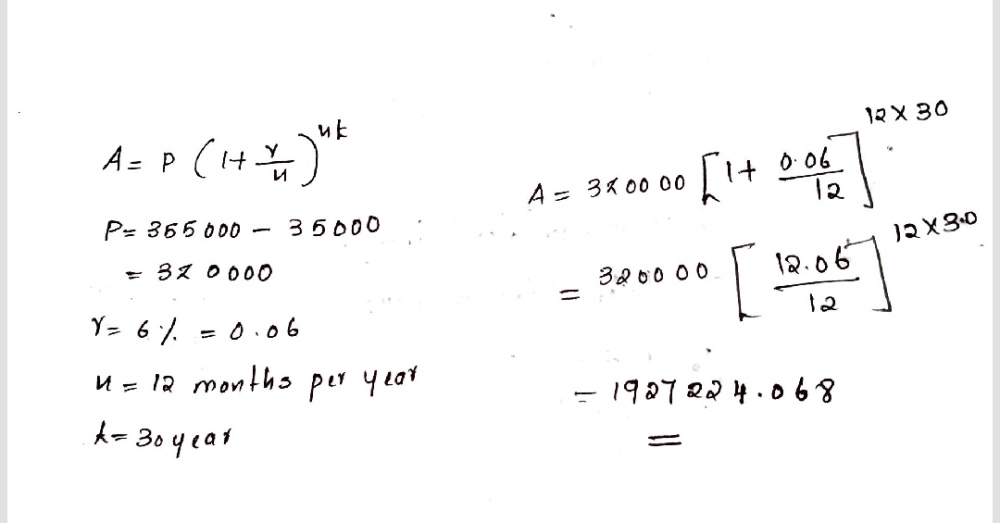 A = P (1+ r/n)^nt
P = 355000 – 35000
= 320000
r = 6% = 0.06
n = 12 months per year
t = 30 year
A = 320000 [1+ 0.06/12]^12×30
= 320000 [12.06/12]^12×30
= 1927224.068